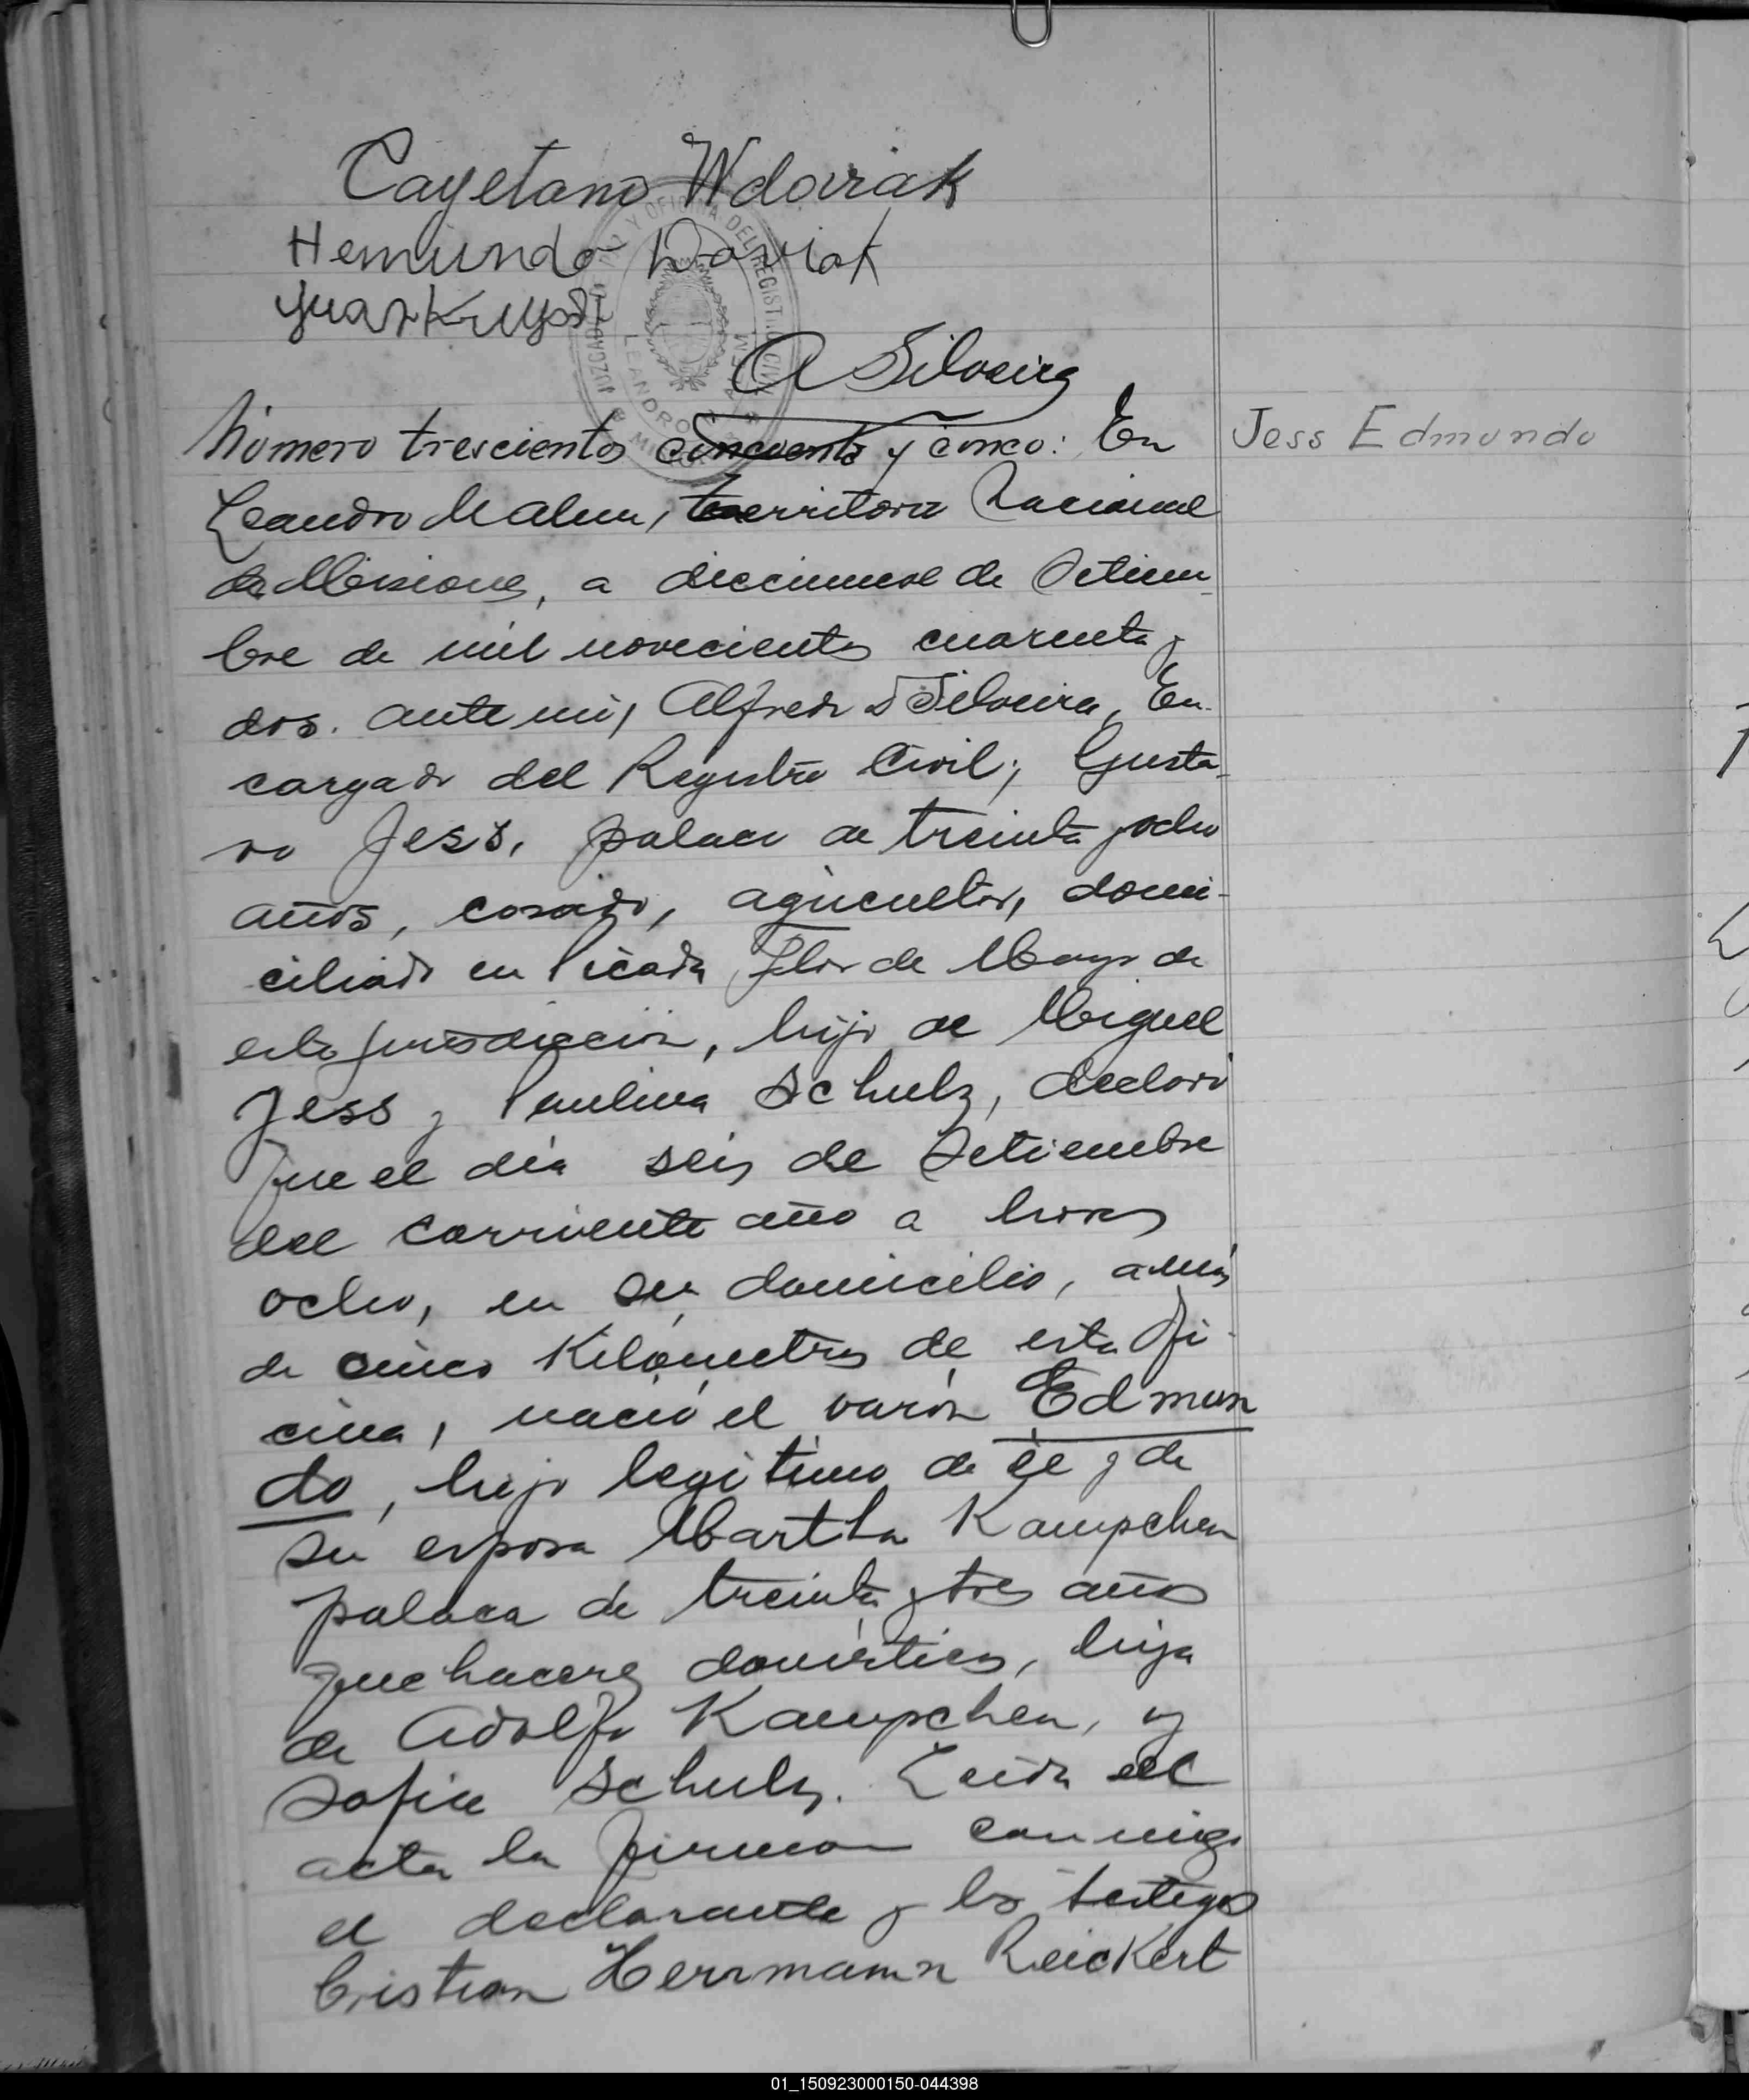 Cayetano Wdoviak
Hemundo Daviak
Juan
JUZGADO DE PAZ Y OFICINA DEL REGISTRO CIVIL
LEANDRO N. ALEM
MISIONES
A Silveira
Número trescientos cincuenta y cinco: En
Jess Edmundo
Leandro N Alem, territorio Nacional
de Misiones, a diecinueve de Setiem-
bre de mil novecientos cuarenta y
dos. ante mi, Alfredo D Silveira, En-
cargado del Registro Civil; Gusta-
vo Jess, polaco de treinta y ocho
años, casado, agricultor, domi-
ciliado en Picada Flor de Mayo de
esta jurisdicción, hijo de Miguel
Jess y Paulina Schulz, declaró
que el día seis de Setiembre
del corriente año a horas
ocho, en su domicilio, a más
de cinco Kilómetros de esta Ofi-
cina, nació el varón Edmun
do, hijo legítimo de él y de
su esposa Martha Kampchen
polaca de treinta y tres años
quehaceres domésticos, hija
de Adolfo Kampchen, y
Sofia Schulz. Leida el
acta la firman conmigo
el declarante y los testigos
Cristian Herrmann Reickert
01_150923000150-044398